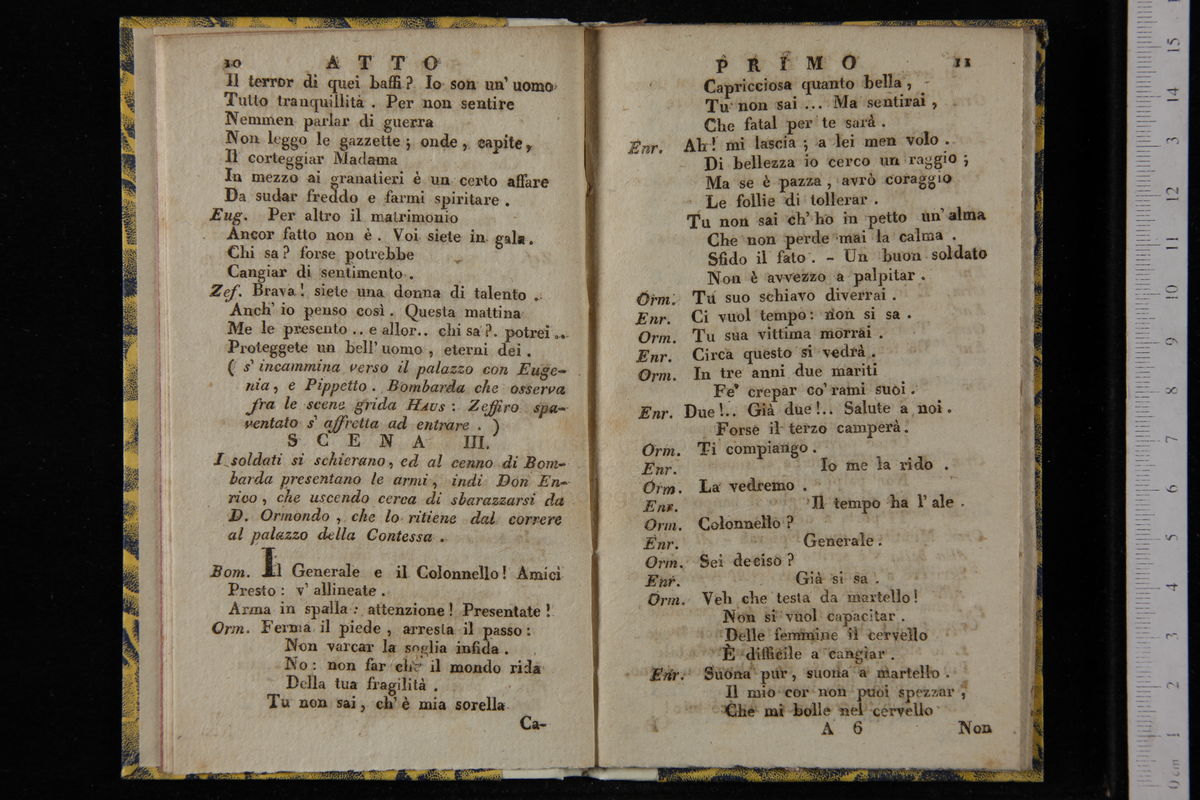 10 ATTO
Il terror di quei baffi? Io son un' uomo
Tutto tranquillità. Per non sentire
Nemmen parlar di guerra
Non leggo le gazzette; onde, capite,
Il corteggiar Madama
In mezzo ai granatieri è un certo affare
Da sudar freddo e farmi spiritare.
Eug. Per altro il matrimonio
Ancor fatto non è. Voi siete in gala.
Chi sa? forse potrebbe
Cangiar di sentimento.
Zef. Brava! siete una donna di talento.
Anch' io penso così. Questa mattina
Me le presento.. e allor.. chi sa?. potrei..
Proteggete un bell' uomo, eterni dei.
( s' incammina verso il palazzo con Euge-
nia, e Pippetto. Bombarda che osserva
fra le scene grida HAUS: Zeffiro spa-
ventato s' affretta ad entrare. )
SCENA III.
I soldati si schierano, ed al cenno di Bom-
barda presentano le armi, indi Don En-
rico, che uscendo cerca di sbarazzarsi da
D. Ormondo, che lo ritiene dal correre
al palazzo della Contessa.
Bom. Il Generale e il Colonnello! Amici
Presto: v' allineate.
Arma in spalla: attenzione! Presentate!
Orm. Ferma il piede, arresta il passo:
Non varcar la soglia infida.
No: non far che il mondo rida
Della tua fragilità.
Tu non sai, ch' è mia sorella
Ca-
PRIMO 11
Capricciosa quanto bella,
Tu non sai ... Ma sentirai,
Che fatal per te sarà.
Enr. Ah! mi lascia; a lei men volo.
Di bellezza io cerco un raggio;
Ma se è pazza, avrò coraggio
Le follie di tollerar.
Tu non sai ch' ho in petto un' alma
Che non perde mai la calma.
Sfido il fato. - Un buon soldato
Non è avvezzo a palpitar.
Orm. Tu suo schiavo diverrai.
Enr. Ci vuol tempo: non si sa.
Orm. Tu sua vittima morrai.
Enr. Circa questo si vedrà.
Orm. In tre anni due mariti
Fe' crepar co' rami suoi.
Enr. Due!.. Già due!.. Salute a noi.
Forse il terzo camperà.
Orm. Ti compiango.
Enr. Io me la rido.
Orm. La vedremo.
Enr. Il tempo ha l' ale.
Orm. Colonnello?
Enr. Generale.
Orm. Sei deciso?
Enr. Già si sa.
Orm. Veh che testa da martello!
Non si vuol capacitar.
Delle femmine il cervello
È difficile a cangiar.
Enr. Suona pur, suona a martello.
Il mio cor non puoi spezzar,
Che mi bolle nel cervello
A 6 Non
0 cm 1 2 3 4 5 6 7 8 9 10 11 12 13 14 15